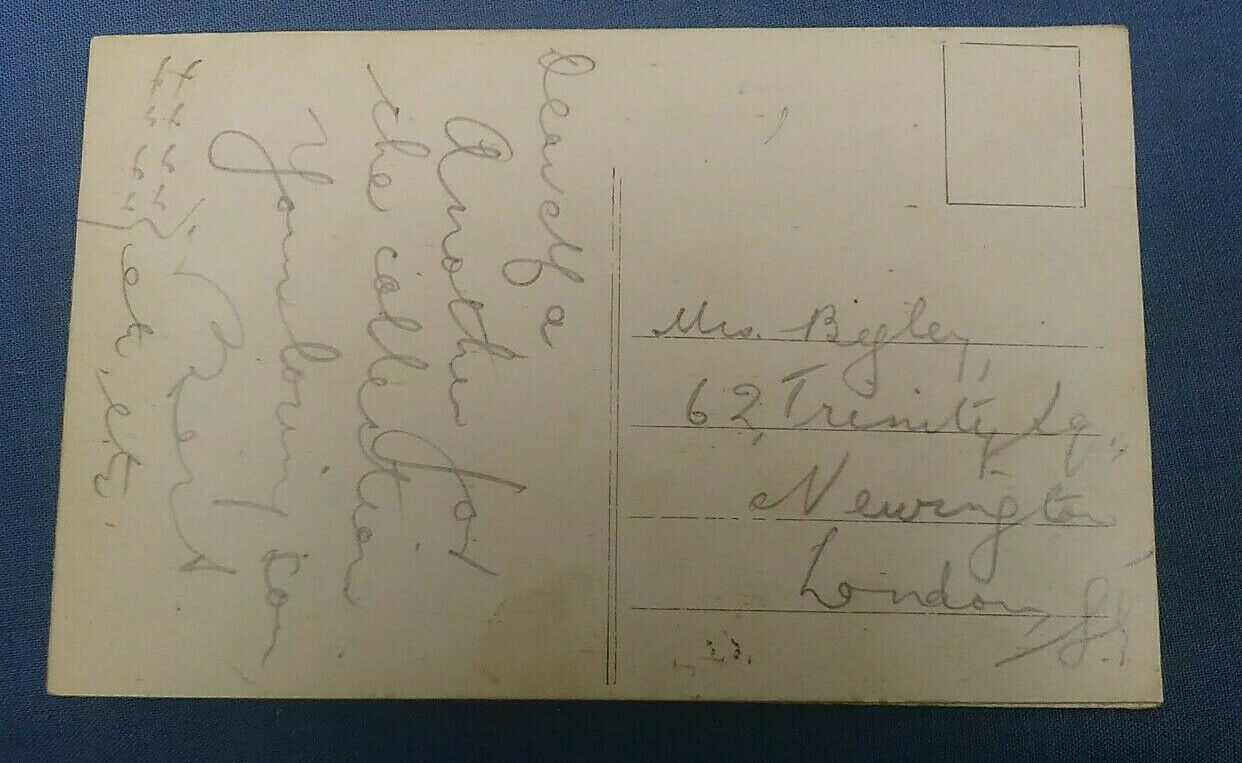 Dear Elf a
Another for
the collection
Your loving son
Bert
x x x x x x x x } etc, etc.
Mrs. Bigley,
62, Trinity Sq.,
Newington
London